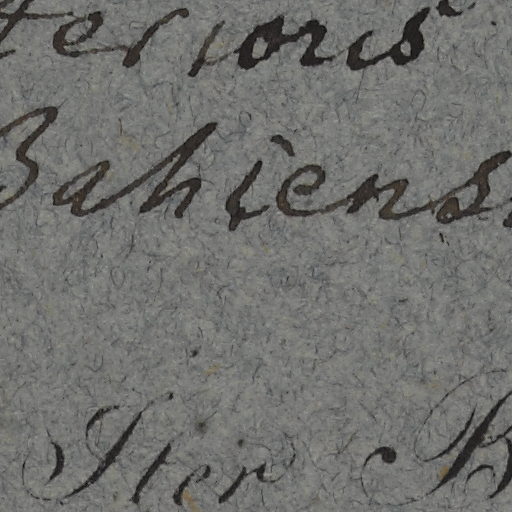 terioris
Bahiens.
Iter B